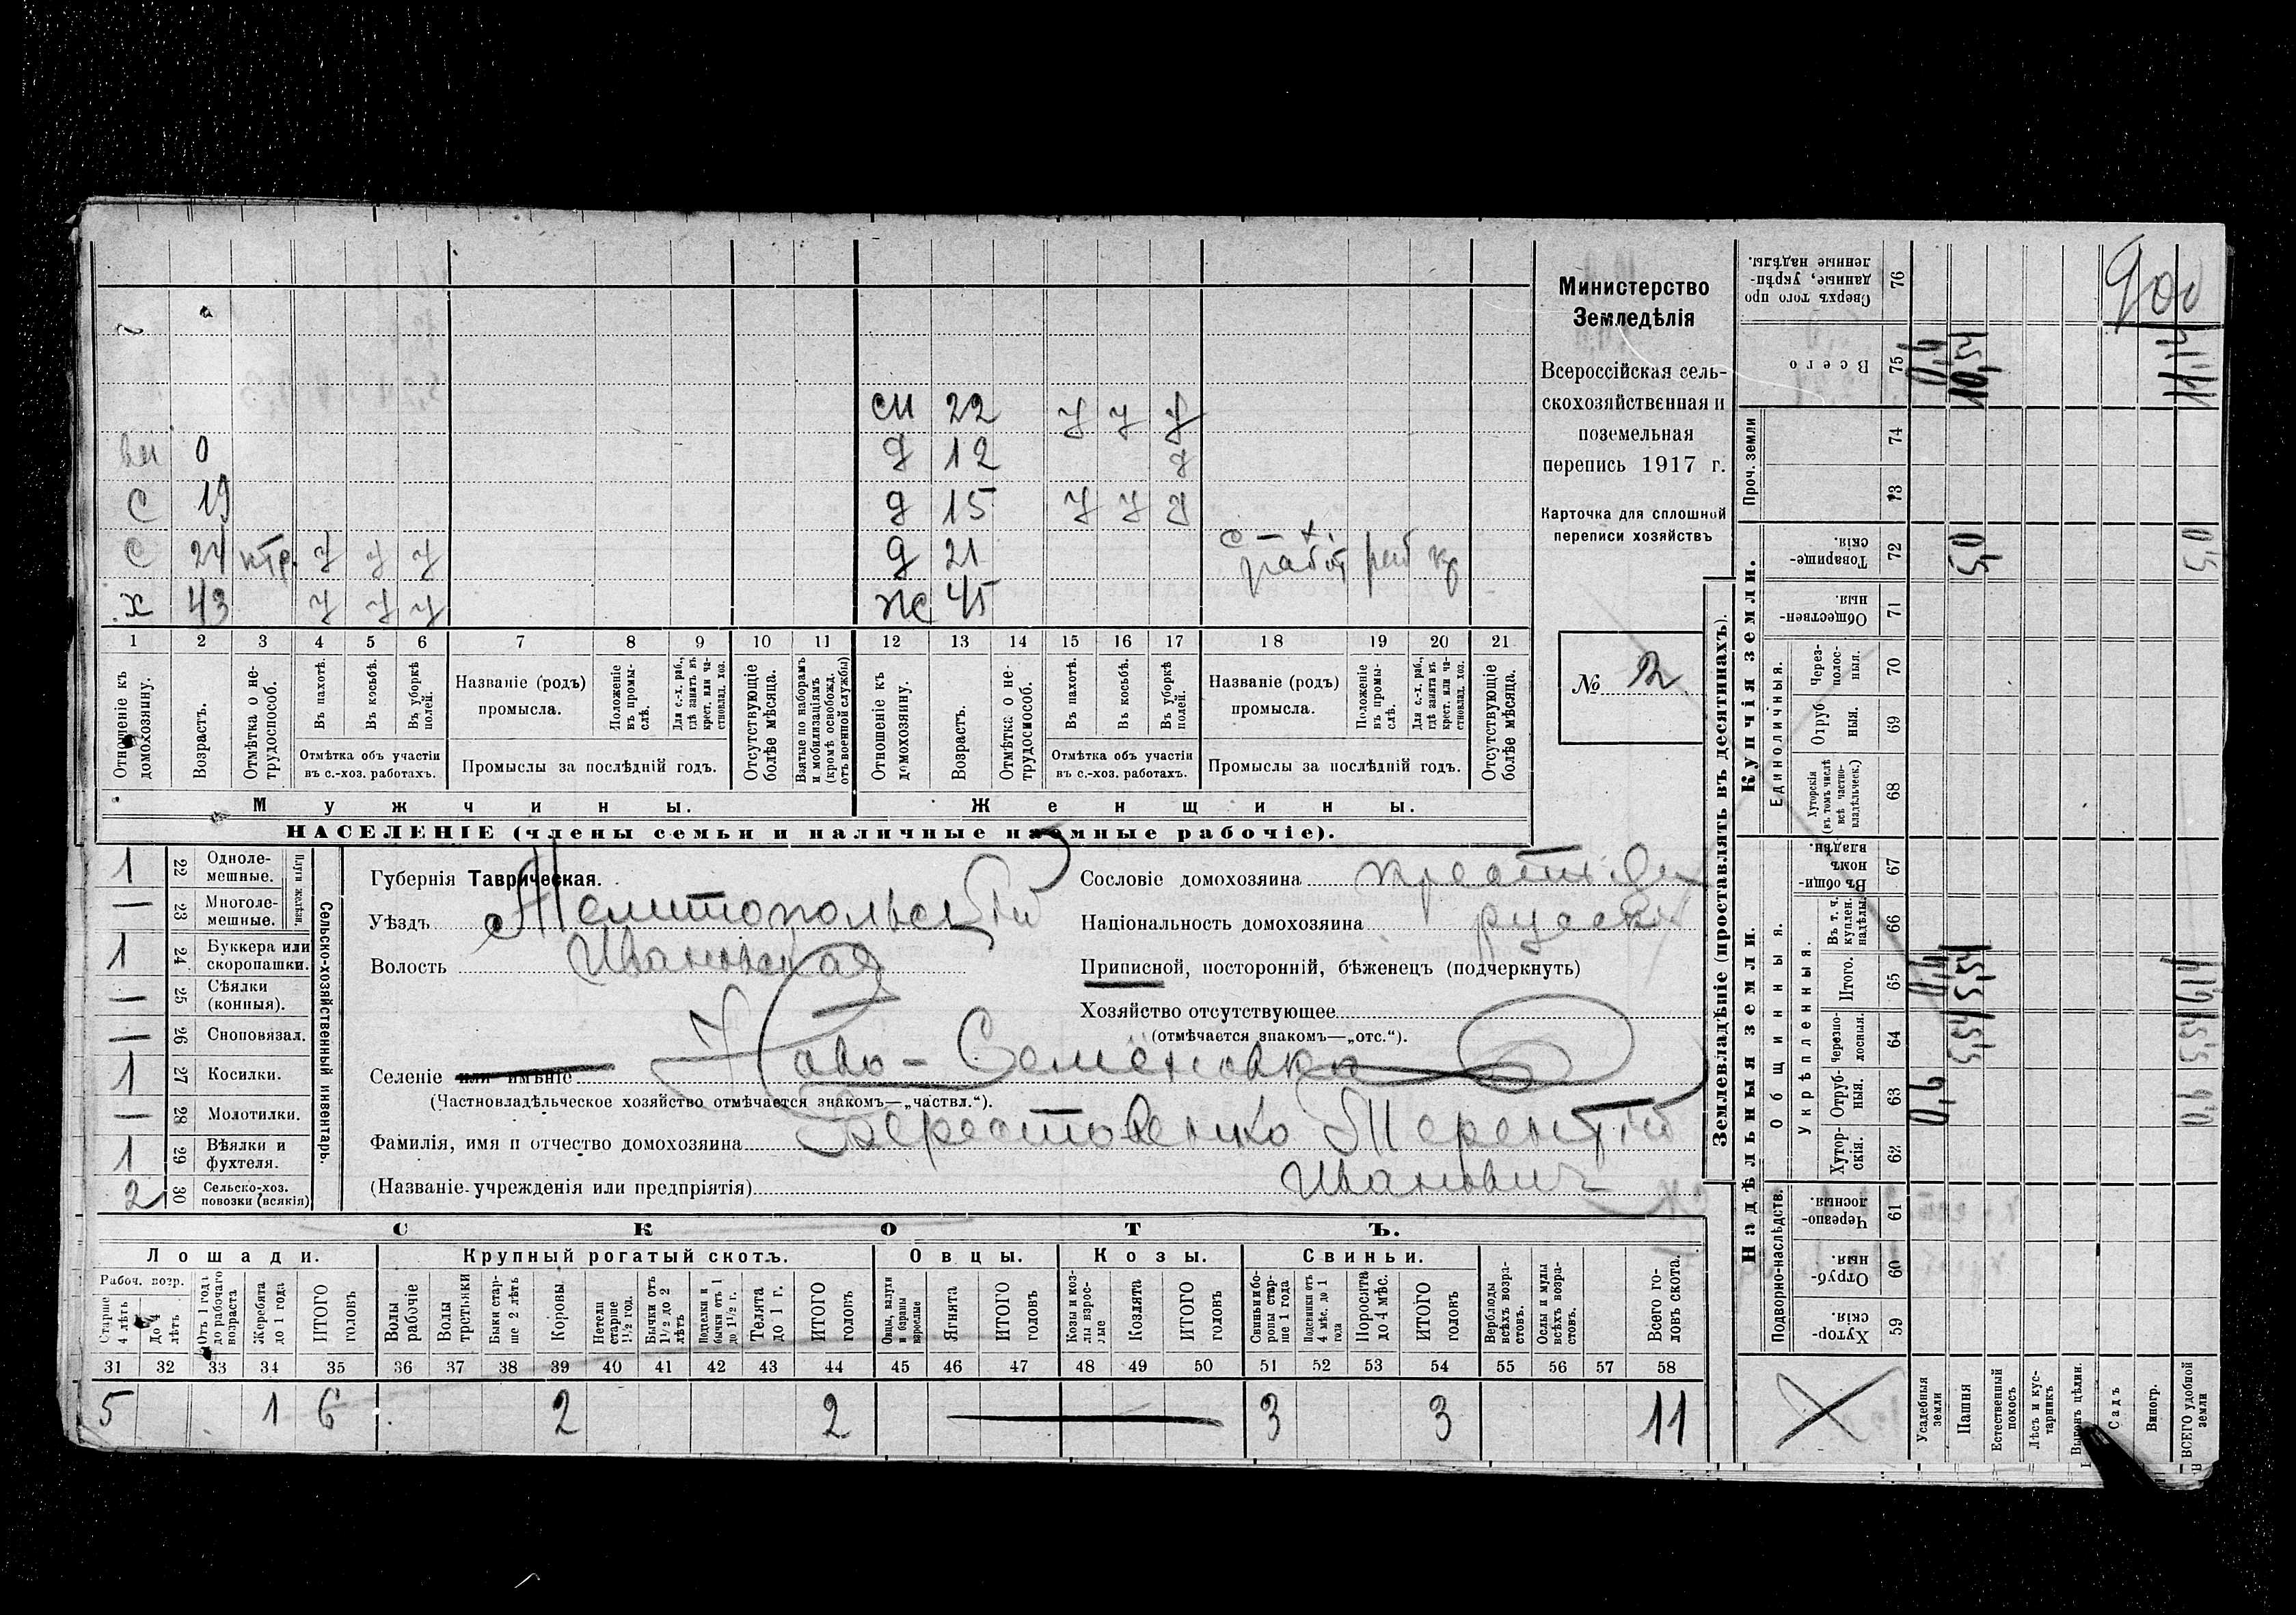 см 22 у у у
вн 0 д 12 у
с 19 д 15 у у у
с 24 у у у д 21
х 43 у у у ж 45
1 2 3 4 5 6 7 8 9 10 11 12 13 14 15 16 17 18 19 20 21
Отношеніе къ домохозяину.
Возрастъ.
Отмѣтка о нетрудоспособ.
Въ пахотѣ.
Въ косьбѣ.
Въ уборкѣ полей.
Отмѣтка объ участіи въ с.-хоз. работахъ.
Названіе (родъ) промысла.
Положеніе въ промыслѣ.
Для с.-х. раб., гдѣ занятъ въ крест. или частновлад. хоз.
Промыслы за послѣдній годъ.
Отсутствующіе болѣе мѣсяца.
Взятые по наборамъ и мобилизаціямъ (кромѣ освобожд. отъ военной службы)
Отношеніе къ домохозяину.
Возрастъ.
Отмѣтка о нетрудоспособ.
Въ пахотѣ.
Въ косьбѣ.
Въ уборкѣ полей.
Отмѣтка объ участіи въ с.-хоз. работахъ.
Названіе (родъ) промысла.
Положеніе въ промыслѣ.
Для с.-х. раб., гдѣ занята въ крест. или частновлад. хоз.
Промыслы за послѣдній годъ.
Отсутствующіе болѣе мѣсяца.
Мужчины. Женщины.
НАСЕЛЕНІЕ (члены семьи и наличные наемные рабочіе).
Министерство
Земледѣлія
Всероссійская сель-
скохозяйственная и
поземельная
перепись 1917 г.
Карточка для сплошной
переписи хозяйствъ
№ 2
1 22 Одноле-мешные.
— 23 Многоле-мешные.
Плуги желѣзн.
1 24 Буккера или скоропашки.
— 25 Сѣялки (конныя).
— 26 Сноповязал.
1 27 Косилки.
— 28 Молотилки.
1 29 Вѣялки и фухтеля.
2 30 Сельско-хоз. повозки (всякія)
Сельско-хозяйственный инвентарь.
Губернія Таврическая.
Уѣздъ Мелитопольскій
Волость Ивановская
Селеніе или имѣніе Ново-Семёновка
(Частновладѣльческое хозяйство отмѣчается знакомъ—„частвл.“).
Фамилія, имя и отчество домохозяина Берестовенко Терентій
(Названіе учрежденія или предпріятія) Ивановичъ
Сословіе домохозяина
Національность домохозяина русск
Приписной, посторонній, бѣженецъ (подчеркнуть)
Хозяйство отсутствующее
(отмѣчается знакомъ—„отс.“).
СКОТЪ.
Лошади. Крупный рогатый скотъ. Овцы. Козы. Свиньи.
Рабоч. возр.
Старше 4 лѣтъ
До 4 лѣтъ
Отъ 1 года до рабочаго возраста
Жеребята до 1 года
ИТОГО головъ
Волы рабочіе
Волы третьяки
Быки старше 2 лѣтъ
Коровы
Нетели старше 1½ год.
Бычки отъ 1½ до 2 лѣтъ
Подтелки и бычки отъ 1 до 1½ г.
Телята до 1 г.
ИТОГО головъ
Овцы, валухи и бараны взрослые
Ягнята
ИТОГО головъ
Козы и козлы взрослые
Козлята
ИТОГО головъ
Свиньи и боровы старше 1 года
Подсвинки отъ 4 мѣс. до 1 года
Поросята до 4 мѣс.
ИТОГО головъ
Верблюды всѣхъ возрастовъ.
Ослы и мулы всѣхъ возрастовъ.
Всего головъ скота.
31 32 33 34 35 36 37 38 39 40 41 42 43 44 45 46 47 48 49 50 51 52 53 54 55 56 57 58
5 1 6 2 2 — 3 3 11
Землевладѣніе (проставлять въ десятинахъ).
Надѣльныя земли. Купчія земли.
Подворно-наслѣдств. Общинныя. Укрѣпленныя. Единоличныя. Проч. земли
Хуторскія 59
Отрубныя. 60
Черезполосныя. 61
Хуторскія. 62
Отрубныя. 63
Черезполосныя. 64
Итого. 65
Въ т. ч. куплен. надѣлы. 66
Въ общинномъ владѣн. 67
Хуторскія (въ томъ числѣ всѣ частновладѣльческ.) 68
Отрубныя. 69
Черезполосныя. 70
Общественныя. 71
Товарищескія. 72
73
74
Всего 75
Сверхъ того проданные, укрѣпленные надѣлы. 76
Усадебныя земли
Пашня
Естественный покосъ
Лѣсъ и кустарникъ
Выгонъ цѣлин.
Садъ
Виногр.
ВСЕГО удобной земли
0,6
5,54 5,54
5,0 5,0
10,54